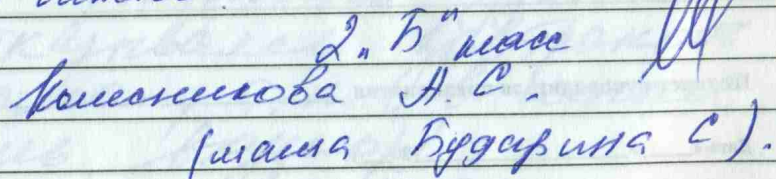 2 „Б" класс
Колесникова А. С.
(мама Бударина С).